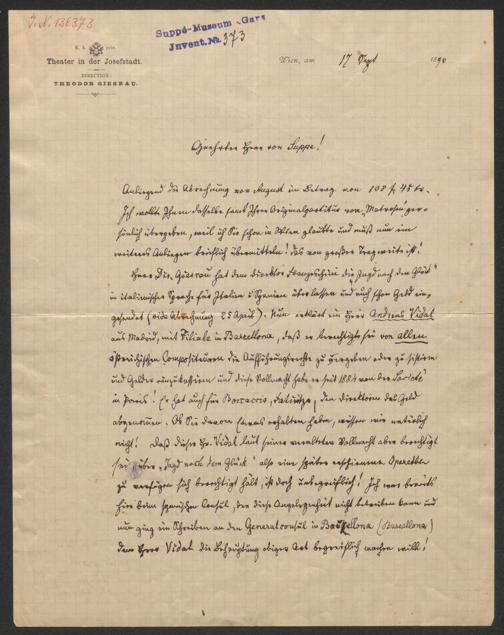 I.N. 126373
Suppé-Museum Gars
Invent. No 373
K. k. priv.
Theater in der Josefstadt.
DIRECTION:
THEODOR GIESRAU.
Wien, am 17 Sept 1890
Geehrter Herr von Suppe!
Anliegend die Abrechnung von August im Betrag von 108 f 45 kr.
Ich wollte Ihnen dasselbe samt Ihrer Originalpartitur von Matrosen per-
sönlich übergeben, weil ich Sie schon in Wien glaubte und muß nun ein
weiteres Anliegen brieflich übermitteln! das von großer Tragweite ist!
Herr Dir. hat dem Direktor Franzeschini die "Jagd nach dem Glück"
in italienischer Sprache für Italien u Spanien überlassen und auch schon Geld ein-
gesendet (vide Abrechnung 25 April). Nun erklärt ein Herr Andreas Vidal
aus Madrid, mit Filiale in Barcellona, daß er berechtigt sei von allen
österreichischen Compositeuren die Aufführungsrechte zu vergeben oder zu sistiren
und Gelder einzukassiren und diese Vollmacht habe er seit 1884 von der Societé
in Paris! Er hat auch für Boccaccio, Fatinitza, den Direktoren das Geld
abgenommen. Ob Sie davon etwas erhalten haben, wissen wir natürlich
nicht! Daß dieser Hr. Vidal laut seiner veralteten Vollmacht aber berechtigt
sei über "Jagd nach dem Glück" also eine später erschienene Operette
zu verfügen sich berechtigt hält, ist doch unbegreiflich! Ich war bereits
hier beim spanischen Consul, der diese Angelegenheit nicht betreiben kann und
nun ging ein Schreiben an den Generalconsul in Barcellona (Barcellona)
dem Herr Vidal die Behauptung obiger Art begreiflich machen will!